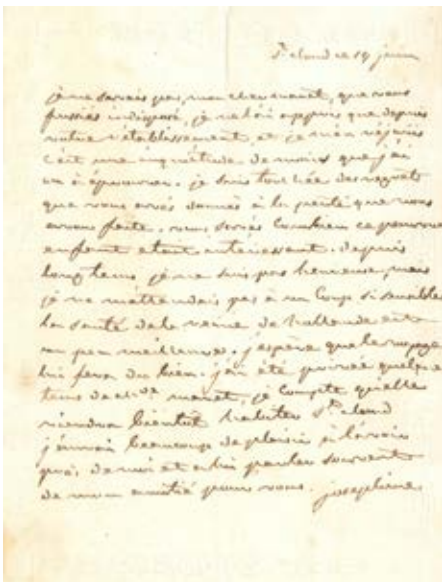 St cloud ce 19 juin
je ne savais pas, mon cher manet, que vous
fussiés indisposé, je ne l'ai appris que depuis
votre rétablissement, et je m'en réjouis
c'est une inquiétude de moins que j'ai
eu à éprouver. je suis touchée des regrets
que vous avés donnés à la perte que nous
avons faite. vous savés combien ce pauvre
enfant etait interessant. depuis
longtems je ne suis pas heureuse, mais
je ne m'attendais pas à un coup si sensible
la santé de la reine de hollande est
un peu meilleure. j'espère que le voyage
lui fera du bien. j'ai été privée quelque
tems de mde manet, je compte qu'elle
viendra bientot habiter St cloud
j'aurai beaucoup de plaisir à l'avoir
près de moi et a lui parler souvent
de mon amitié pour vous. josephine